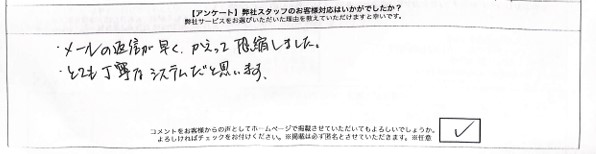 【アンケート】弊社スタッフのお客様対応はいかがでしたか？
弊社サービスをお選びいただいた理由を教えていただけますと幸いです。
・メールの返信が早く、かえって恐縮しました。
・とても丁寧なシステムだと思います。
コメントをお客様からの声としてホームページで掲載させていただいてもよろしいでしょうか。
よろしければチェックをお付けください。※掲載は必ず匿名とさせていただきます。※任意